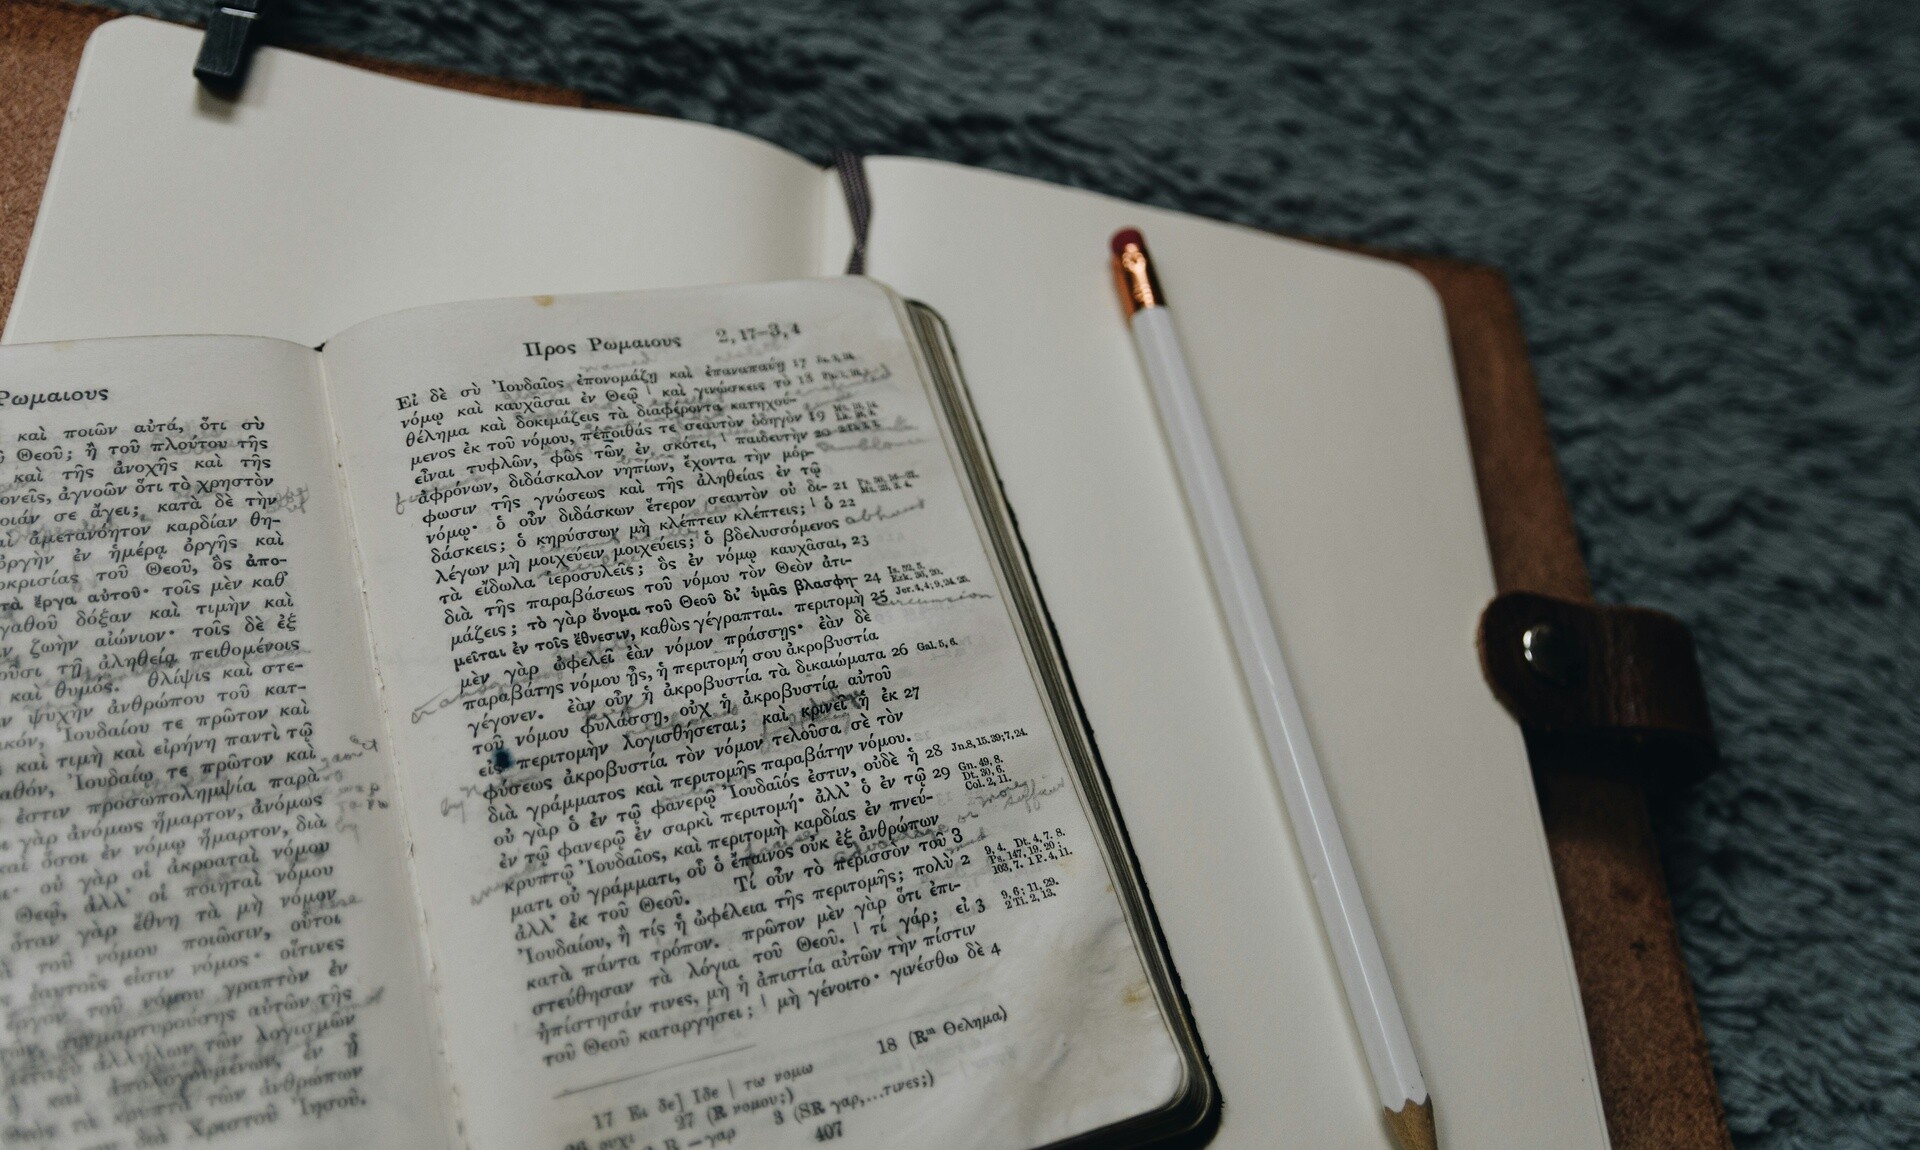 Ρωμαιους
καὶ ποιῶν αὐτά, ὅτι σὺ
Θεοῦ; ἢ τοῦ πλούτου τῆς
καὶ τῆς ἀνοχῆς καὶ τῆς
ἀγνοῶν ὅτι τὸ χρηστὸν
σε ἄγει; κατὰ δὲ τὴν
ἀμετανόητον καρδίαν θη-
ὀργὴν ἐν ἡμέρᾳ ὀργῆς καὶ
τοῦ Θεοῦ, ὃς ἀπο-
ἔργα αὐτοῦ· τοῖς μὲν καθ'
δόξαν καὶ τιμὴν καὶ
ζωὴν αἰώνιον· τοῖς δὲ ἐξ
τῇ ἀληθείᾳ πειθομένοις
καὶ θυμός. θλίψις καὶ στε-
ψυχὴν ἀνθρώπου τοῦ κατ-
Ἰουδαίου τε πρῶτον καὶ
καὶ τιμὴ καὶ εἰρήνη παντὶ τῷ
Ἰουδαίῳ τε πρῶτον καὶ
ἐστιν προσωπολημψία παρὰ
γὰρ ἀνόμως ἥμαρτον, ἀνόμως
ὅσοι ἐν νόμῳ ἥμαρτον, διὰ
οὐ γὰρ οἱ ἀκροαταὶ νόμου
Θεῷ, ἀλλ' οἱ ποιηταὶ νόμου
ὅταν γὰρ ἔθνη τὰ μὴ νόμον
τοῦ νόμου ποιῶσιν, οὗτοι
ἑαυτοῖς εἰσιν νόμος· οἵτινες
τοῦ νόμου γραπτὸν ἐν
αὐτῶν τῆς
ἀλλήλων τῶν λογισμῶν
ἀπολογουμένων, ἐν ᾗ
τῶν ἀνθρώπων
Χριστοῦ Ἰησοῦ.
Προς Ρωμαιους 2, 17–3, 4
Εἰ δὲ σὺ Ἰουδαῖος ἐπονομάζῃ καὶ ἐπαναπαύῃ 17
νόμῳ καὶ καυχᾶσαι ἐν Θεῷ | καὶ γινώσκεις τὸ 18
θέλημα καὶ δοκιμάζεις τὰ διαφέροντα κατηχού-
μενος ἐκ τοῦ νόμου, πέποιθάς τε σεαυτὸν ὁδηγὸν 19
εἶναι τυφλῶν, φῶς τῶν ἐν σκότει, | παιδευτὴν 20
ἀφρόνων, διδάσκαλον νηπίων, ἔχοντα τὴν μόρ-
φωσιν τῆς γνώσεως καὶ τῆς ἀληθείας ἐν τῷ
νόμῳ· ὁ οὖν διδάσκων ἕτερον σεαυτὸν οὐ δι- 21
δάσκεις; ὁ κηρύσσων μὴ κλέπτειν κλέπτεις; | ὁ 22
λέγων μὴ μοιχεύειν μοιχεύεις; ὁ βδελυσσόμενος abhorr
τὰ εἴδωλα ἱεροσυλεῖς; ὃς ἐν νόμῳ καυχᾶσαι, 23
διὰ τῆς παραβάσεως τοῦ νόμου τὸν Θεὸν ἀτι-
μάζεις; τὸ γὰρ ὄνομα τοῦ Θεοῦ δι' ὑμᾶς βλασφη- 24 Is. 52, 5. Ezk. 36, 20.
μεῖται ἐν τοῖς ἔθνεσιν, καθὼς γέγραπται. περιτομὴ 25 Jer. 4, 4; 9, 24. 25. circumcision
μὲν γὰρ ὠφελεῖ ἐὰν νόμον πράσσῃς· ἐὰν δὲ
παραβάτης νόμου ᾖς, ἡ περιτομή σου ἀκροβυστία
γέγονεν. ἐὰν οὖν ἡ ἀκροβυστία τὰ δικαιώματα 26 Gal. 5, 6.
τοῦ νόμου φυλάσσῃ, οὐχ ἡ ἀκροβυστία αὐτοῦ
εἰς περιτομὴν λογισθήσεται; καὶ κρινεῖ ἡ ἐκ 27
φύσεως ἀκροβυστία τὸν νόμον τελοῦσα σὲ τὸν
διὰ γράμματος καὶ περιτομῆς παραβάτην νόμου.
οὐ γὰρ ὁ ἐν τῷ φανερῷ Ἰουδαῖός ἐστιν, οὐδὲ ἡ 28 Jn. 8, 15. 39; 7, 24.
ἐν τῷ φανερῷ ἐν σαρκὶ περιτομή· ἀλλ' ὁ ἐν τῷ 29 Gn. 49, 8. Dt. 30, 6. Col. 2, 11.
κρυπτῷ Ἰουδαῖος, καὶ περιτομὴ καρδίας ἐν πνεύ-
ματι οὐ γράμματι, οὗ ὁ ἔπαινος οὐκ ἐξ ἀνθρώπων
ἀλλ' ἐκ τοῦ Θεοῦ. Τί οὖν τὸ περισσὸν τοῦ 3
Ἰουδαίου, ἢ τίς ἡ ὠφέλεια τῆς περιτομῆς; πολὺ 2 9, 4. Dt. 4, 7. 8. Ps. 147, 19. 20; 103, 7. 1 P. 4, 11.
κατὰ πάντα τρόπον. πρῶτον μὲν γὰρ ὅτι ἐπι-
στεύθησαν τὰ λόγια τοῦ Θεοῦ. | τί γάρ; εἰ 3 9, 6; 11, 29. 2 Ti. 2, 13.
ἠπίστησάν τινες, μὴ ἡ ἀπιστία αὐτῶν τὴν πίστιν
τοῦ Θεοῦ καταργήσει; | μὴ γένοιτο· γινέσθω δὲ 4
17 Ει δε] Ιδε | τω νομω 18 (Rᵐ Θελημα)
ουχι 27 (R νομου;)
R – γαρ 3 (SR γαρ,...τινες;)
407